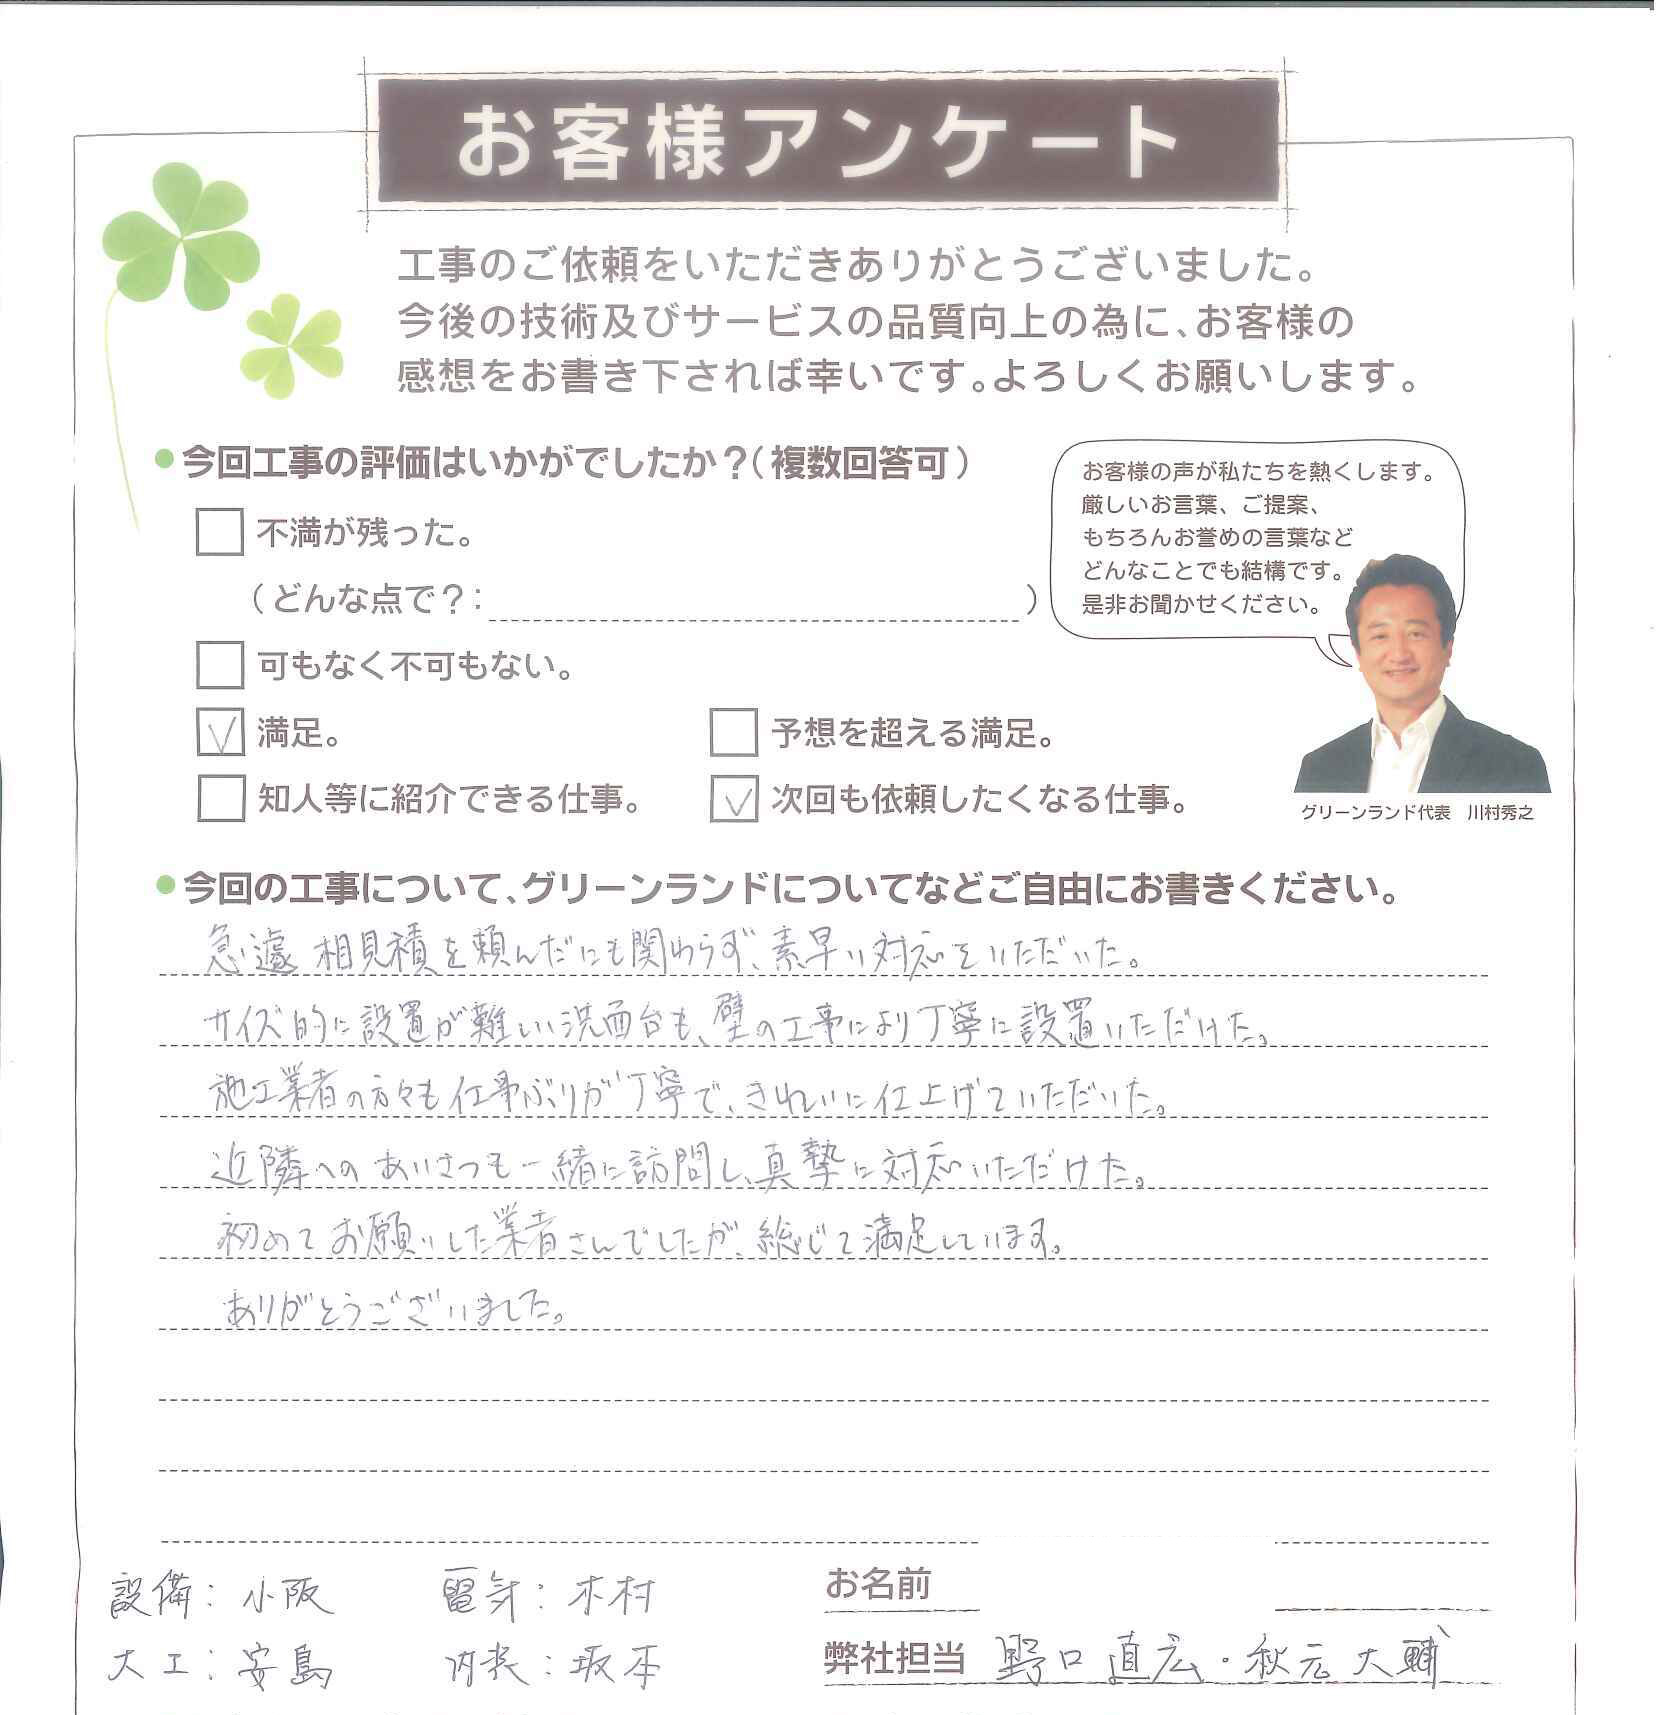 お客様アンケート
工事のご依頼をいただきありがとうございました。
今後の技術及びサービスの品質向上の為に、お客様の
感想をお書き下されば幸いです。よろしくお願いします。
●今回工事の評価はいかがでしたか？（複数回答可）
不満が残った。
（どんな点で？：　）
可もなく不可もない。
満足。
予想を超える満足。
知人等に紹介できる仕事。
次回も依頼したくなる仕事。
お客様の声が私たちを熱くします。
厳しいお言葉、ご提案、
もちろんお誉めの言葉など
どんなことでも結構です。
是非お聞かせください。
グリーンランド代表　川村秀之
●今回の工事について、グリーンランドについてなどご自由にお書きください。
急遽 相見積を頼んだにも関わらず、素早い対応をいただいた。
サイズ的に設置が難しい洗面台も、壁の工事により丁寧に設置いただけた。
施工業者の方々も仕事ぶりが丁寧で、きれいに仕上げていただいた。
近隣へのあいさつも一緒に訪問し、真摯に対応いただけた。
初めてお願いした業者さんでしたが、総じて満足しています。
ありがとうございました。
設備：小阪　電気：木村
大工：安島　内装：坂本
お名前
弊社担当 野口 直広・秋元 大輔